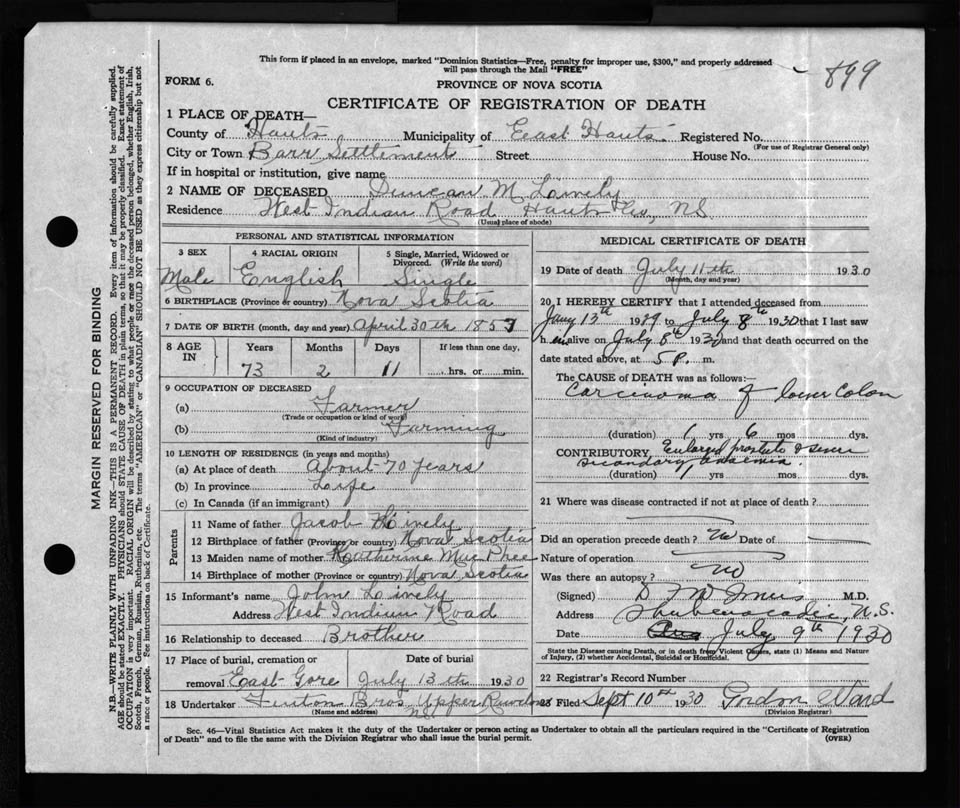 This form if placed in an envelope, marked "Dominion Statistics—Free, penalty for improper use, $300," and properly addressed
will pass through the Mail "FREE"
899
FORM 6.
PROVINCE OF NOVA SCOTIA
CERTIFICATE OF REGISTRATION OF DEATH
MARGIN RESERVED FOR BINDING
N.B.—WRITE PLAINLY WITH UNFADING INK—THIS IS A PERMANENT RECORD. Every item of information should be carefully supplied.
AGE should be stated EXACTLY. PHYSICIANS should STATE CAUSE OF DEATH in plain terms, so that it may be properly classified. Exact statement of
OCCUPATION is very important. RACIAL ORIGIN will be described by stating to what people or race the deceased person belonged, whether English, Irish,
Scotch, French, German, Russian, Ruthenian, etc. The terms "AMERICAN" or "CANADIAN" SHOULD NOT BE USED as they express citizenship but not
a race or people. See instructions on back of Certificate.
1 PLACE OF DEATH—
County of Hants Municipality of East Hants Registered No.
(For use of Registrar General only)
City or Town Barr Settlement Street House No.
If in hospital or institution, give name
2 NAME OF DECEASED Duncan M Lively
Residence West Indian Road Hants Co, NS
(Usual place of abode)
PERSONAL AND STATISTICAL INFORMATION
3 SEX 4 RACIAL ORIGIN 5 Single, Married, Widowed or
Divorced. (Write the word)
Male English Single
6 BIRTHPLACE (Province or country) Nova Scotia
7 DATE OF BIRTH (month, day and year) April 30th 1857
8 AGE IN Years Months Days If less than one day,
73 2 11 hrs. or min.
9 OCCUPATION OF DECEASED
(a) Farmer
(Trade or occupation or kind of work)
(b) Farming
(Kind of industry)
10 LENGTH OF RESIDENCE (in years and months)
(a) At place of death About 70 years
(b) In province Life
(c) In Canada (if an immigrant)
Parents
11 Name of father Jacob Lively
12 Birthplace of father (Province or country) Nova Scotia
13 Maiden name of mother Katherine MacPhee
14 Birthplace of mother (Province or country) Nova Scotia
15 Informant's name John Lively
Address West Indian Road
16 Relationship to deceased Brother
17 Place of burial, cremation or Date of burial
removal East Gore July 13th 1930
18 Undertaker Fenton Bros Upper Rawdon
(Name and address) NS
MEDICAL CERTIFICATE OF DEATH
19 Date of death July 11th 1930
(Month, day and year)
20 I HEREBY CERTIFY that I attended deceased from
Jany 13th 1929 to July 8th 1930 that I last saw
h im alive on July 8th 1930 and that death occurred on the
date stated above, at 5 P. m.
The CAUSE OF DEATH was as follows:—
Carcinoma of lower Colon
(duration) 1 yrs 6 mos dys.
CONTRIBUTORY Enlarged prostate & severe
secondary anaemia.
(duration) 1 yrs. mos. dys.
21 Where was disease contracted if not at place of death?
Did an operation precede death? No Date of
Nature of operation
Was there an autopsy? No
(Signed) M.D.
Address Shubenacadie, N.S.
Date July 9th 1930
State the Disease causing Death, or in death from Violent Causes, state (1) Means and Nature
of Injury, (2) whether Accidental, Suicidal or Homicidal.
22 Registrar's Record Number
23 Filed Sept 10th 1930 Gordon Ward
(Division Registrar)
Sec. 46—Vital Statistics Act makes it the duty of the Undertaker or person acting as Undertaker to obtain all the particulars required in the "Certificate of Registration
of Death" and to file the same with the Division Registrar who shall issue the burial permit. (OVER)